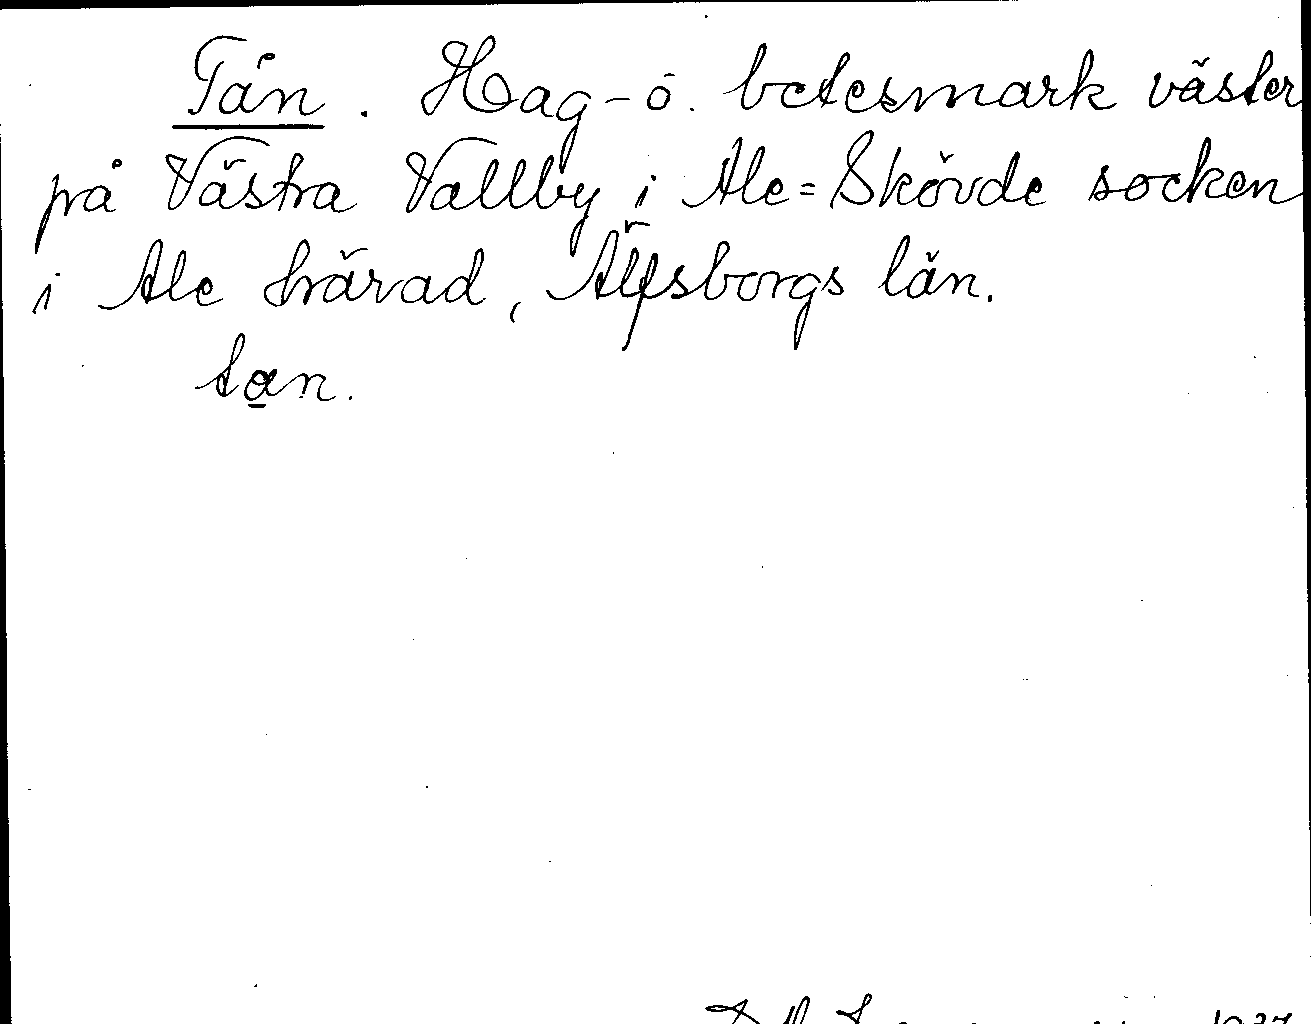 Tån. Hag- o. betesmark väster
på Västra Vallby i Ale=Skövde socken
i Ale härad, Älfsborgs län.
tan.